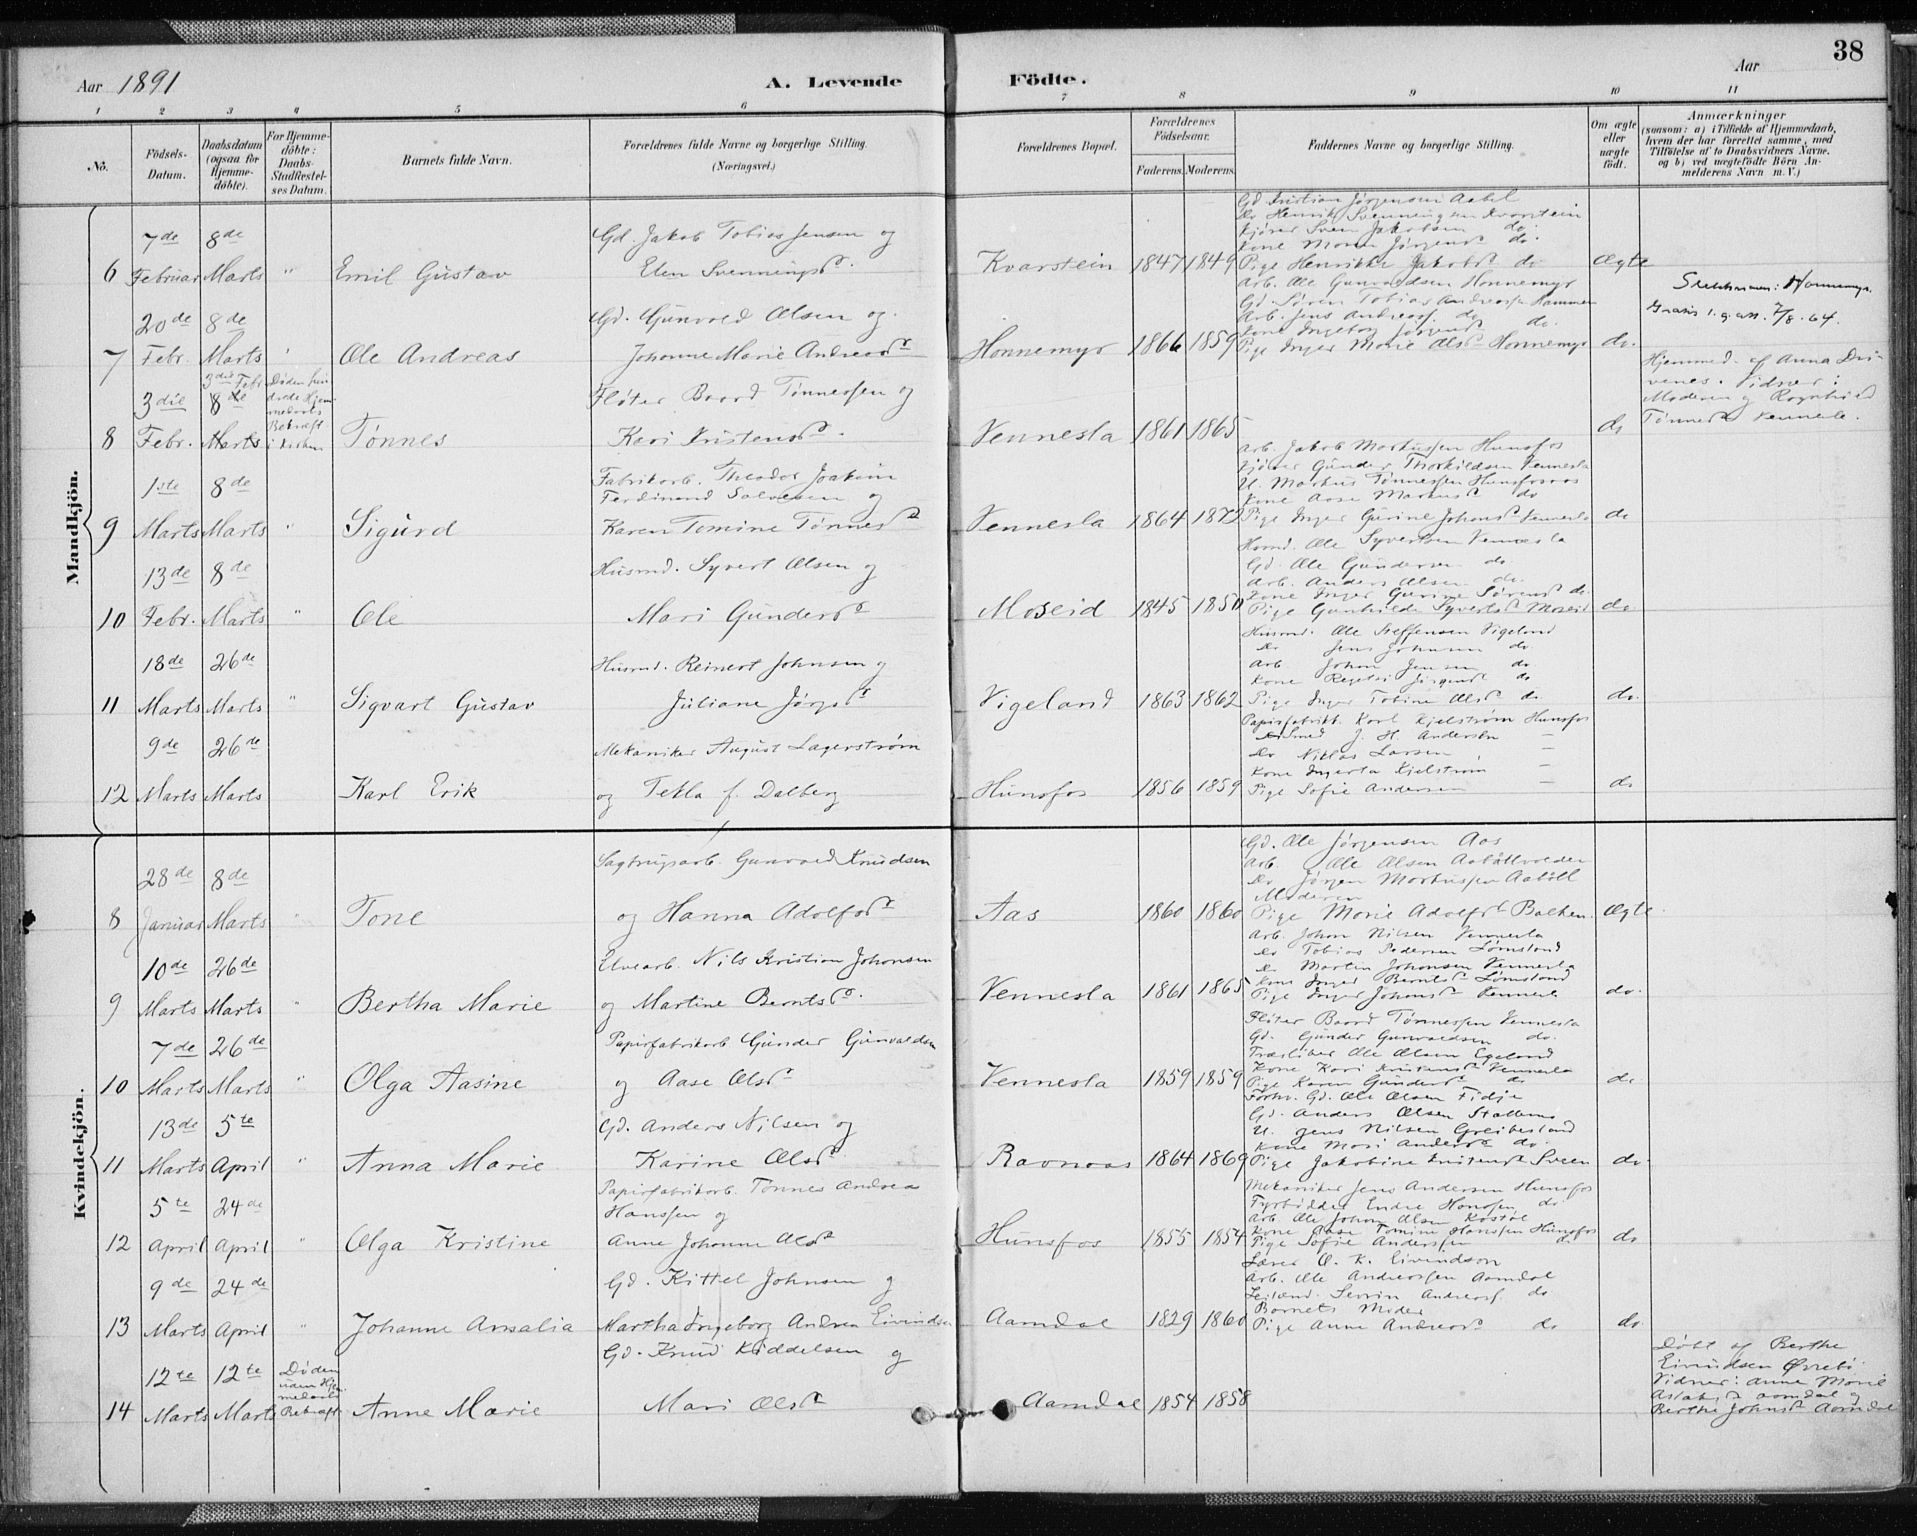 38
Aar 1891
A. Levende
Födte.
Aar
1 2 3 4 5 6 7 8 9 10 11
No.
Födsels-Datum.
Daabsdatum (ogsaa for Hjemmedöbte).
For Hjemmedöbte: Daabs-Stadfæstelses Datum.
Barnets fulde Navn.
Forældrenes fulde Navne og borgerlige Stilling. (Næringsvei.)
Forældrenes Bopæl.
Forældrenes Födselsaar.
Faderens. Moderens.
Faddernes Navne og borgerlige Stilling.
Om ægte eller uægte födt.
Anmærkninger
(saasom: a) i Tilfælde af Hjemmedaab, hvem der har forrettet samme, med Tilföielse af to Daabsvidners Navne, og b) ved uægtefödte Börn Anmelderens Navn m. V.)
Mandkjön.
Gd Kristian Jørgensen Aabel
Do Henrik Svenningsen Kvarstein
Kjører Sven Jakobsen do.
7de 8de Gd. Jakob Tobias Jensen og
6 Februar Marts " Emil Gustav Elen Svenningsd. Kvarstein 1847 1849 Pige Henrikke Jakobsd. do Ægte
Arb. Ole Gunvaldsen Honnemyr
Gd. Søren Tobias Andreassen Hammen
Arb. Jens Andreass. do
Kone Ingeborg Jørgensd. do.
Honnemyr.
Gratis 1. g. att. 7/8. 64.
20de 8de Gd. Gunvold Olsen og
7 Febr. Marts Ole Andreas Johanne Marie Andreasd. Honnemyr 1866 1859 Pige Inger Marie Olsd. Honnemyr do.
3die Febr
3die 8de Fløter Baard Tønnessen og
8 Febr. Marts Tønnes Kari Kristensd. Vennesla 1861 1865 do
Døden hindrede Hjemmedaabs Bekræft i Kirken
Hjemmed. af Anna Drivenes. Vidner: Moderen og Ragnhild Tønnesd. Vennesla.
Arb. Jakob Markussen Hunsfos
Kjører Gunder Thorkildsen Vennesla
U. Markus Tønnessen Hunsfosaas
Kone Aase Markusd. do
1ste 8de Fabrikarb. Theodor Joakim
Ferdinand Salvesen og
9 Marts Marts " Sigurd Karen Tomine Tønnesd. Vennesla 1864 1872 Pige Inger Gurine Johansd. Vennesla do
Husmd. Ole Syvertsen Vennesla
Gd. Ole Gundersen do.
Arb. Anders Olsen do.
Kone Inger Gurine Sørensd. do.
13de 8de Husmd. Syvert Olsen og
10 Febr. Marts " Ole Mari Gundersd. Moseid 1845 1850 Pige Gunhilde Syvertsd. Moseid do.
Husmd. Ole Steffensen Vigeland
Do Jens Johnsen do
Arb Johan Jensen do
Kone Jørgensd. do
18de 26de Husmd. Reinert Johnsen og
11 Marts Marts " Sigvart Gustav Juliane Jørgsd. Vigeland 1863 1862 Pige Inger Tobine Olsd. do do.
Papirfabrikt. Karl Kjelstrøm Hunsfos
Smed J. H. Andersen —
Do Niklas Larsen —
Kone Ingerta Kjelstrøm —
9de 26de Mekaniker August Lagerstrøm
12 Marts Marts Karl Erik og Tekla f. Dalberg Hunsfos 1856 1859 Pige Sofie Andersen — do
Kvindekjön.
Gd. Ole Jørgensen Aas
Arb. Ole Olsen Aabøllvolden
Do Jørgen Markussen Aabøll
Moderen
28de 8de Sagbrugsarb. Gunvald Knudsen
8 Januar Marts " Tone og Hanna Adolfsd. Aas 1860 1860 Pige Marie Adolfsd. Balken. Ægte
Arb. Johan Nilsen Vennesla
Do Tobias Pedersen Lømsland
Do Martin Johansen Vennesla
Kone Inger Berntsd. Lømsland
10de 26de Elvearb. Nils Kristian Johansen
9 Marts Marts " Bertha Marie og Martine Berntsd. Vennesla 1861 1865 Pige Inger Johansd. Vennesla do.
Fløter Baard Tønnessen Vennesla
Gd. Gunder Gunvaldsen do.
Træsliber Ole Olsen Egeland
Kone Kari Kristensd. Vennesla
7de 26de Papirfabrikarb Gunder Gunvaldsen
10 Marts Marts " Olga Aasine og Aase Olsd. Vennesla 1859 1859 Pige Karen Gundersd. do do
Forhv. Gd. Ole Olsen Fidje
Gd. Anders Olsen Stallemo
U. Jens Nilsen Greibesland
Kone Mari Andersd. do.
13de 5te Gd. Anders Nilsen og
11 Marts April " Anna Marie Karine Olsd. Ravnaas 1864 1869 Pige Jakobine Knutsend. Sveen do
Mekaniker Jens Andersen Hunsfos
Fyrbødder Endre Hansen do
Arb. Ole Johan Olsen Kostøl
Kone Aase Tomine Hanssen Hunsfos
5te 24de Papirfabrikarb. Tønnes Andrea
Hanssen og
12 April April " Olga Kristine Anne Johanne Olsd. Hunsfos 1855 1854 Pige Sofie Anderssen do do
Lærer O. K. Eivindson
Arb. Ole Andreassen Aamdal
Leilænd. Severin Andreass. do
Barnets Moder
9de 24de Gd. Kittel Johnsen og
13 Marts April " Johanne Amalia Martha Ingeborg Andrea Eivindsen Aamdal 1829 1860 Pige Anne Andreasd. do do.
12te 12te Gd. Knud Kiddelsen og
14 Marts Marts Anne Marie Mari Olsd. Aamdal 1854 1858
Døden uden Hjemmedaabs Bekræft.
Døbt af Berthe
Eivindsen Øvrebø.
Vidner: Anne Marie
Aslaksd. Aamdal og
Berthe Johnsd. Aamdal